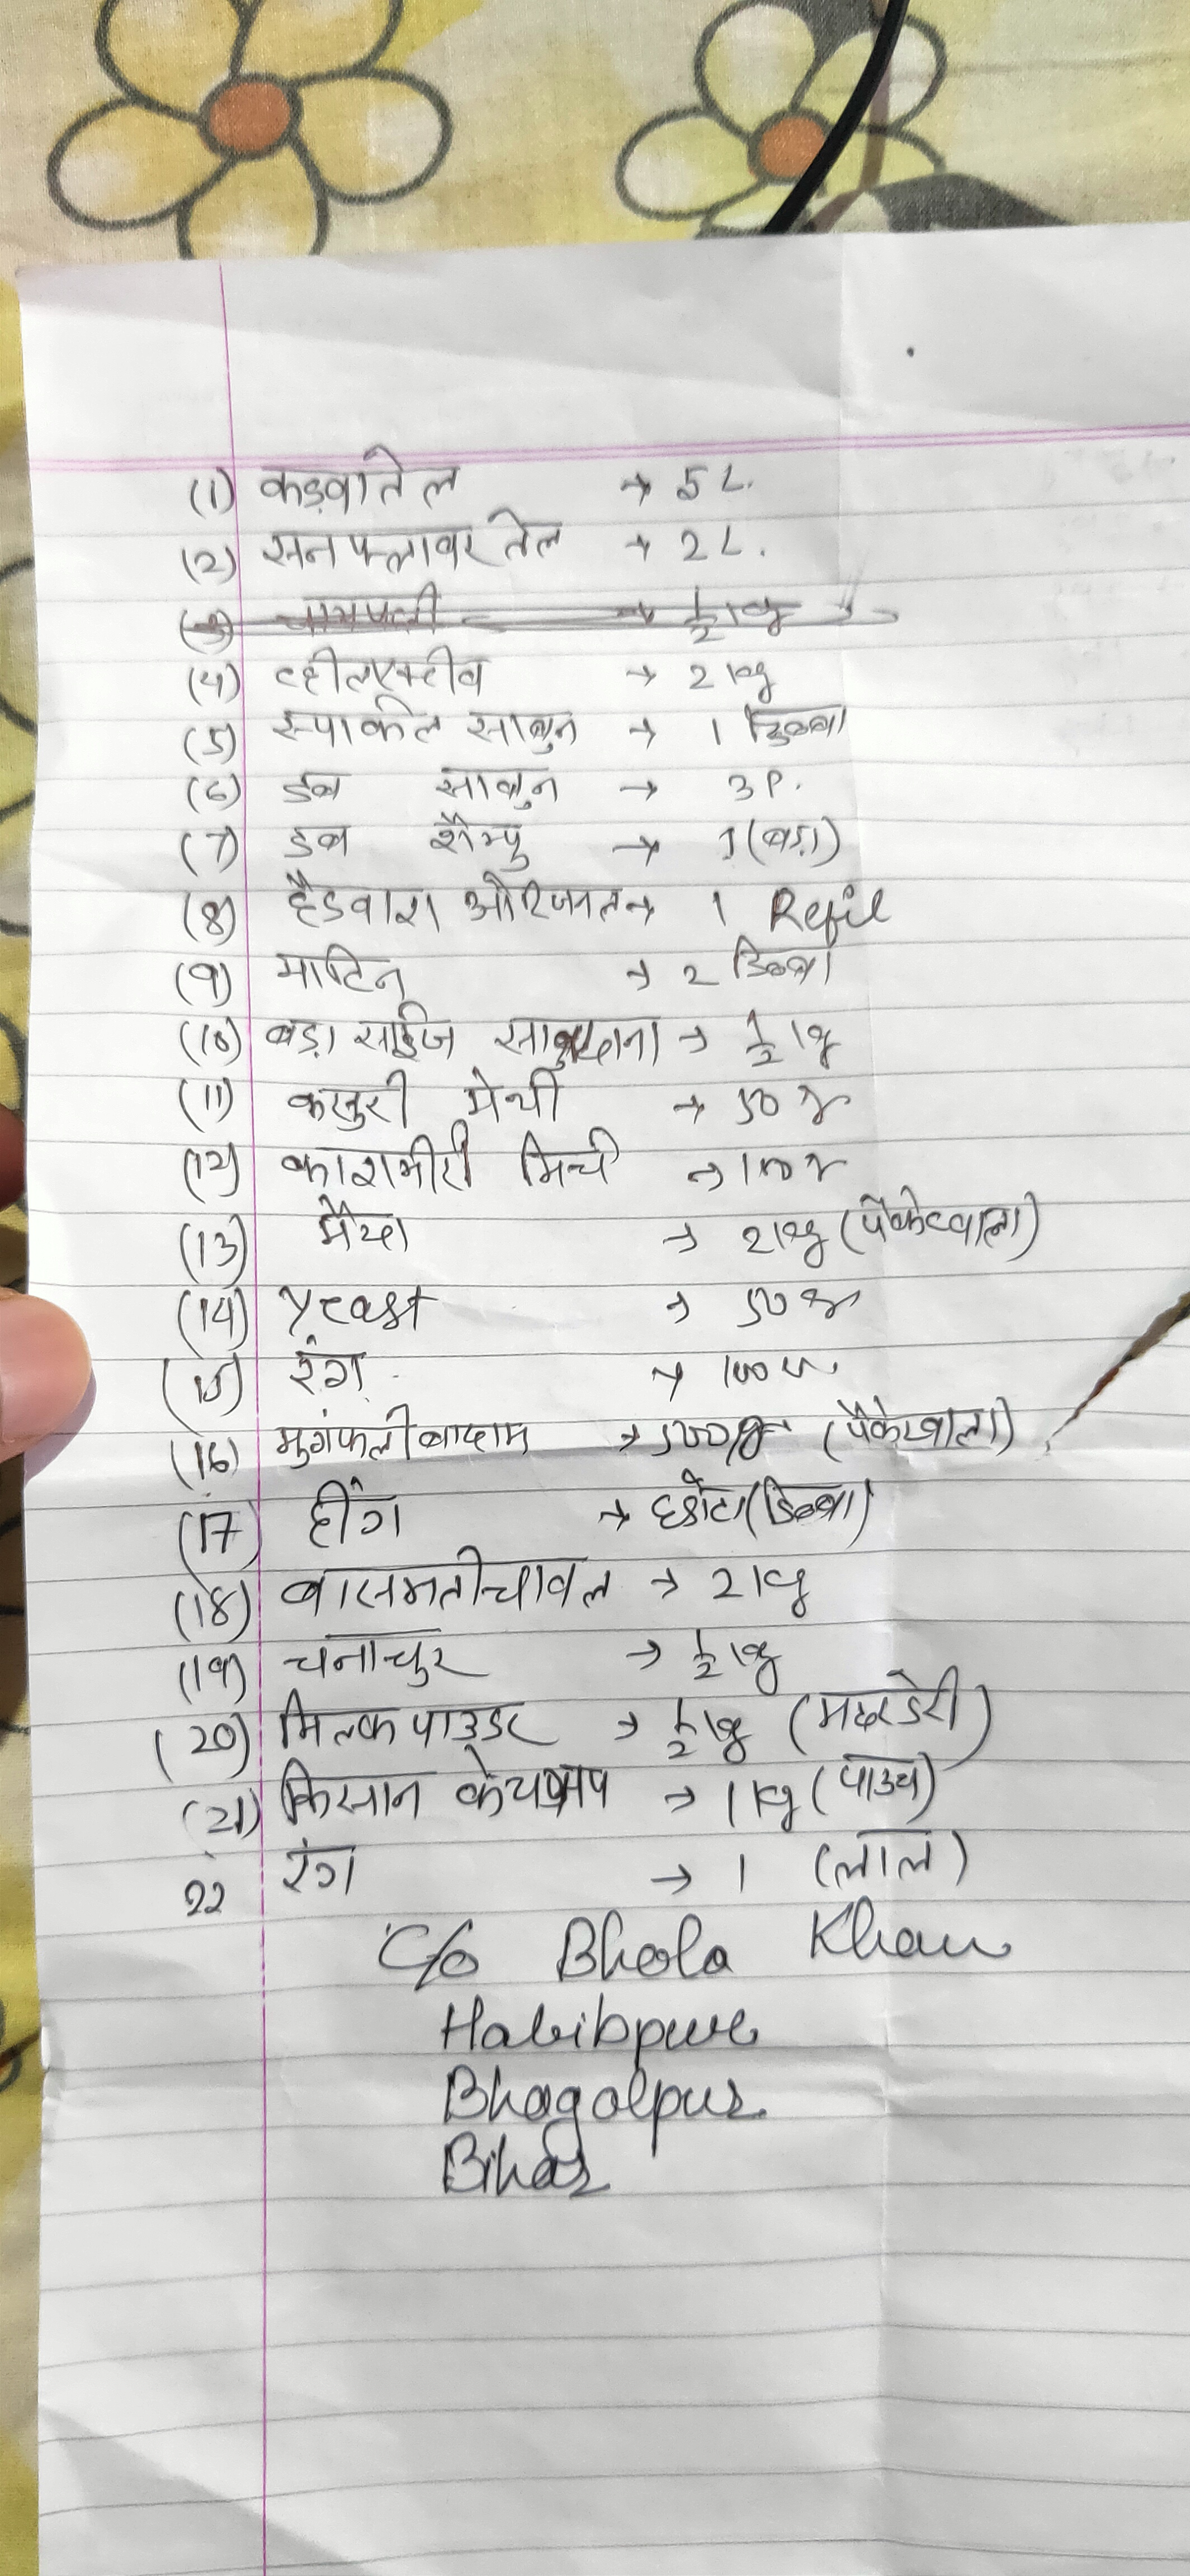 (1) कड़वा तेल → 5 L.
(2) सन फ्लावर तेल → 2 L.
(3) → 1/2 kg
(4) व्हील एक्टीव → 2 kg
(5) स्पार्कल साबुन → 1 डिब्बा
(6) डब साबुन → 3 P.
(7) डब शैम्पु → 1 (बड़ा)
(8) हैंडवाश ओरिजनल → 1 Refil
(9) मार्टिन → 2 डिब्बा
(10) बड़ा साईज साबुदाना → 1/2 kg
(11) कसुरी मेथी → 50 gr
(12) काशमीरी मिर्ची → 100 gr
(13) मैदा → 2 kg (पैकेटवाला)
(14) Yeast → 50 gr
(15) → 100
(16) मुगंफली बादाम → 500 gr (पैकेटवाला)
(17) हींग → छोटा (डिब्बा)
(18) बासमती चावल → 2 kg
(19) चनाचुर → 1/2 kg
(20) मिल्क पाउडर → 1/2 kg (मदर डेरी)
(21) किसान केचअप → 1 kg (पाउच)
22 रंग → 1 (लाल)
C/o Bhola Khan
Habibpur
Bhagalpur
Bihar